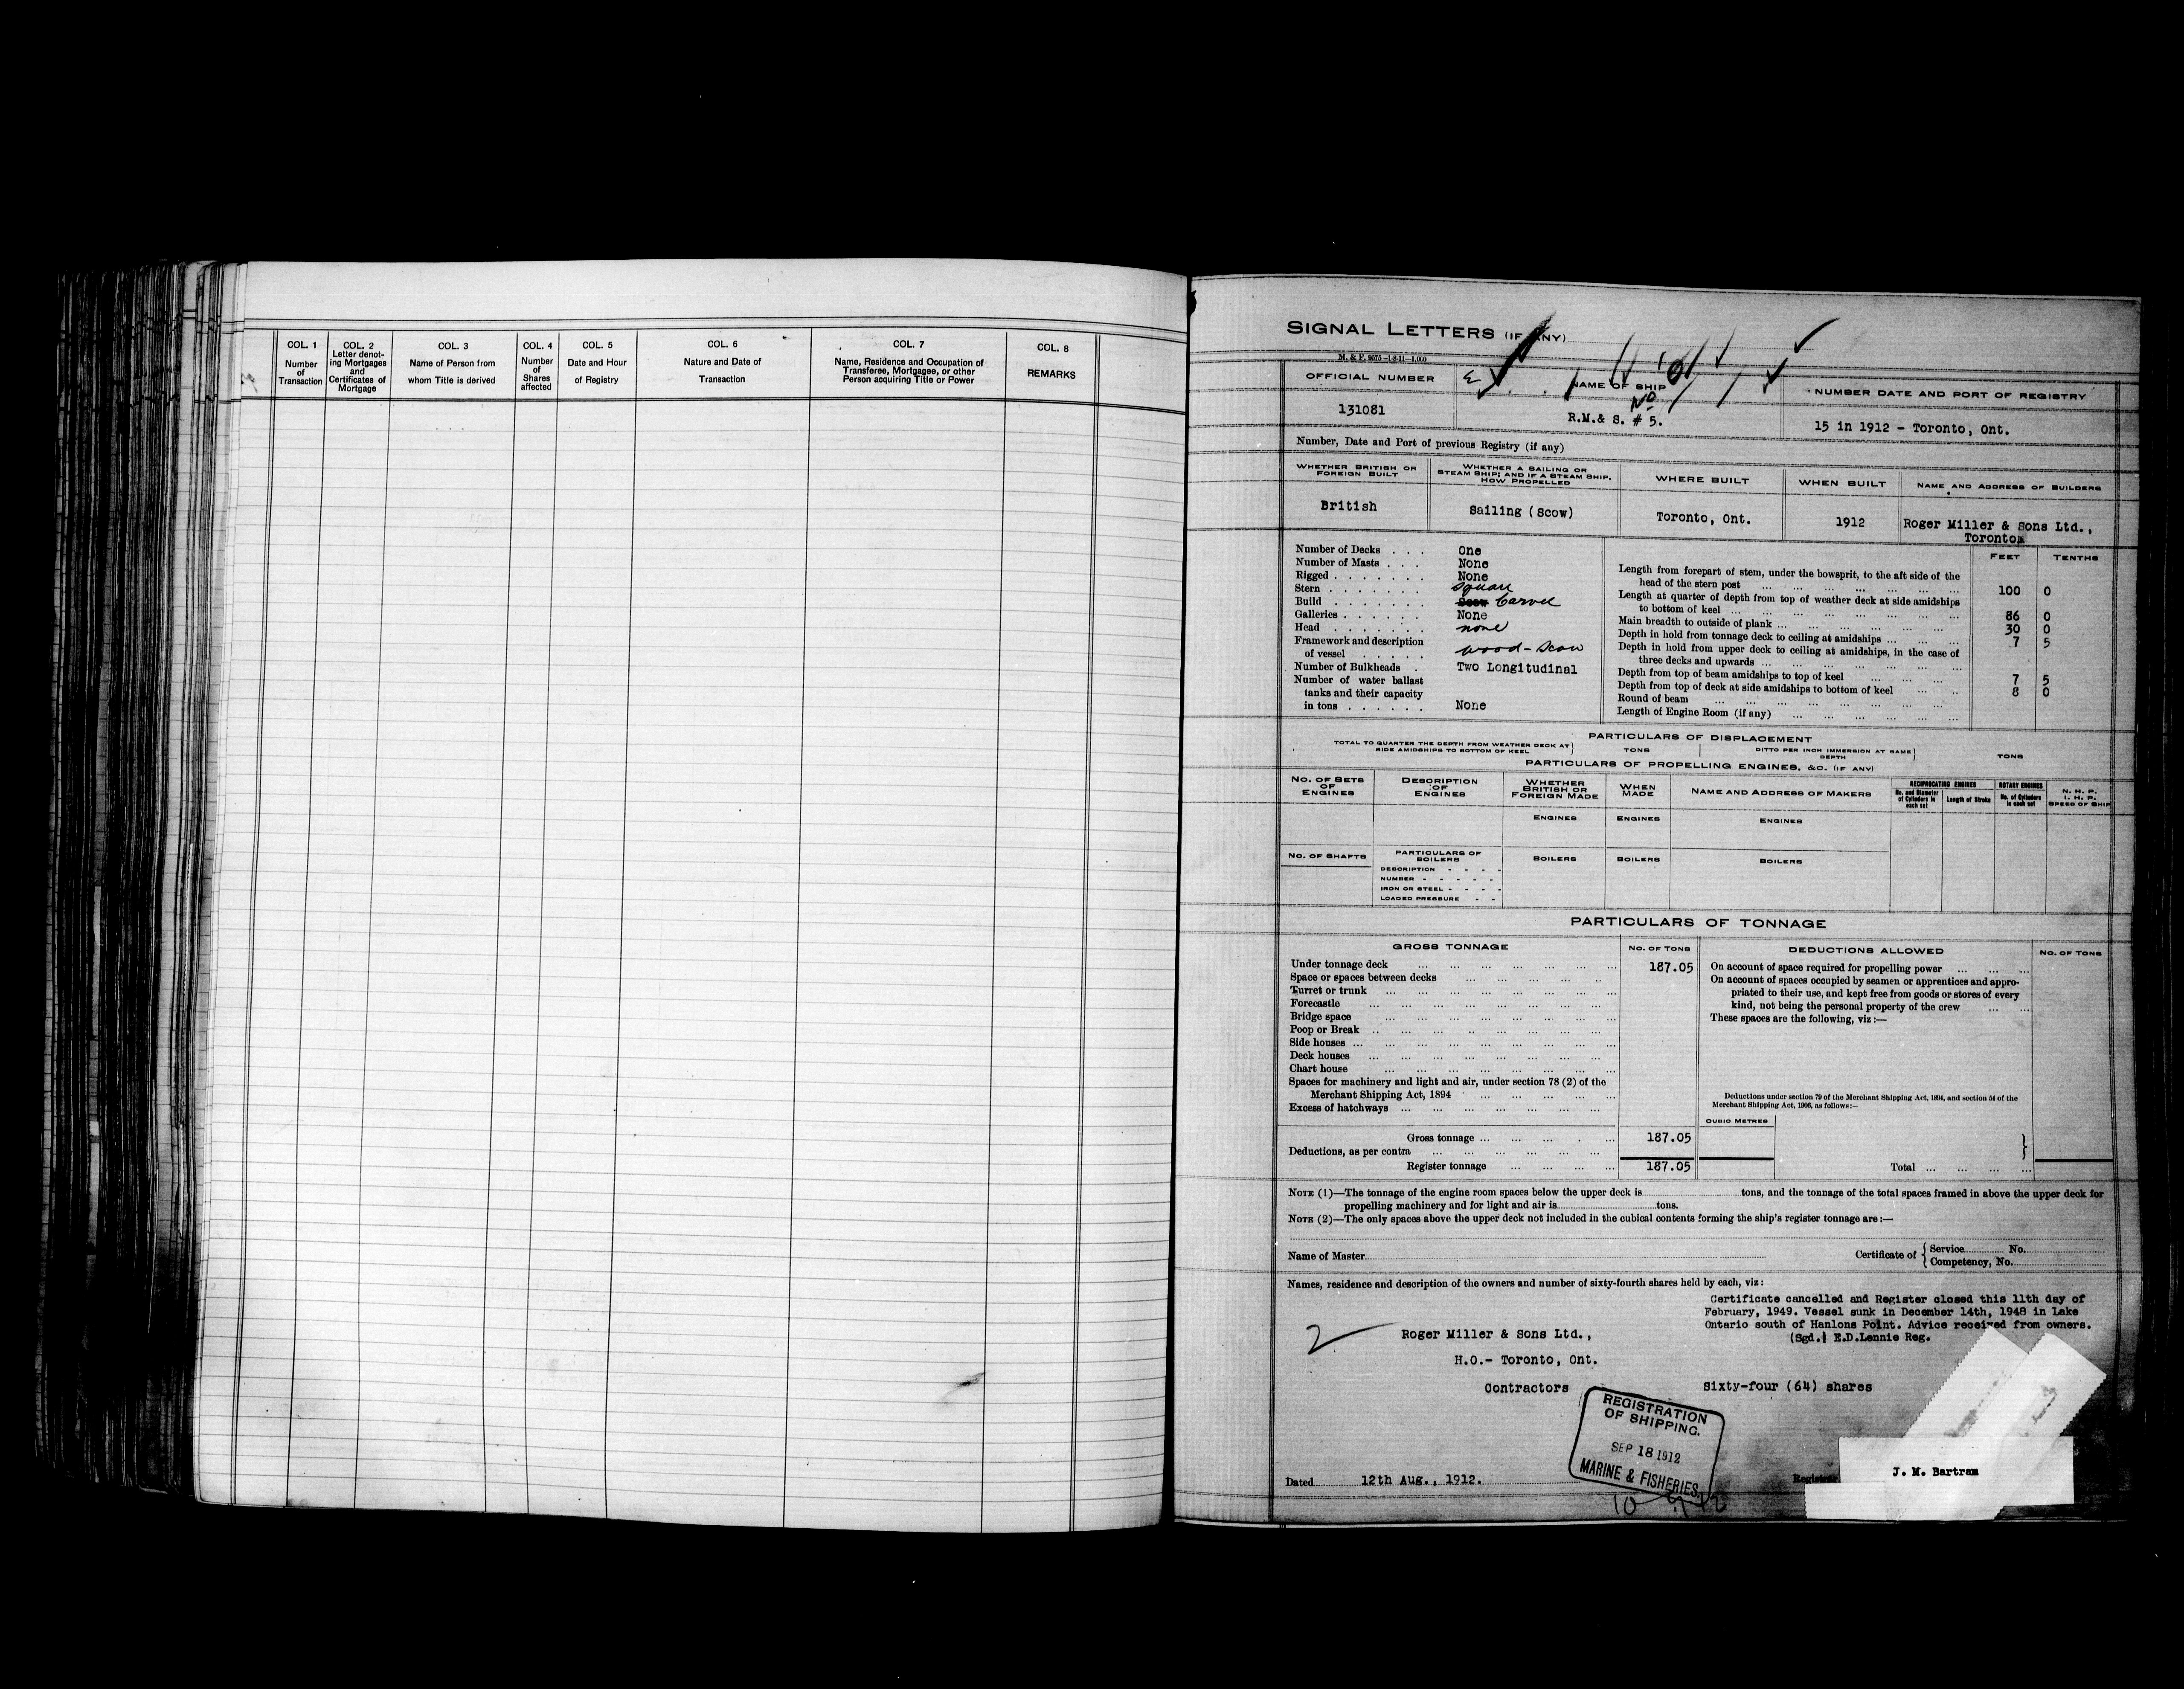 COL. 1
Number
of
Transaction
COL. 2
Letter denot-
ing Mortgages
and
Certificates of
Mortgage
COL. 3
Name of Person from
whom Title is derived
COL. 4
Number
of
Shares
affected
COL. 5
Date and Hour
of Registry
COL. 6
Nature and Date of
Transaction
COL. 7
Name, Residence and Occupation of
Transferee, Mortgagee, or other
Person acquiring Title or Power
COL. 8
REMARKS
SIGNAL LETTERS (IF ANY)
OFFICIAL NUMBER
131081
NAME OF SHIP
No
R.M.& S. # 5.
NUMBER DATE AND PORT OF REGISTRY
15 in 1912 - Toronto, Ont.
Number, Date and Port of previous Registry (if any)
WHETHER BRITISH OR
FOREIGN BUILT
British
WHETHER A SAILING OR
STEAM SHIP; AND IF A STEAM SHIP,
HOW PROPELLED
Sailing (Scow)
WHERE BUILT
Toronto, Ont.
WHEN BUILT
1912
NAME AND ADDRESS OF BUILDERS
Roger Miller & Sons Ltd.,
Toronto
Number of Decks . . . One
Number of Masts . . . None
Rigged . . . . . . . None
Stern . . . . . . . square
Build . . . . . . . Scow Carvel
Galleries . . . . . . None
Head . . . . . . . none
Framework and description
of vessel . . . . . wood - scow
Number of Bulkheads . Two Longitudinal
Number of water ballast
tanks and their capacity
in tons . . . . . . None
FEET TENTHS
Length from forepart of stem, under the bowsprit, to the aft side of the
head of the stern post 100 0
Length at quarter of depth from top of weather deck at side amidships
to bottom of keel 86 0
Main breadth to outside of plank 30 0
Depth in hold from tonnage deck to ceiling at amidships 7 5
Depth in hold from upper deck to ceiling at amidships, in the case of
three decks and upwards
Depth from top of beam amidships to top of keel 7 5
Depth from top of deck at side amidships to bottom of keel 8 0
Round of beam
Length of Engine Room (if any)
PARTICULARS OF DISPLACEMENT
TOTAL TO QUARTER THE DEPTH FROM WEATHER DECK AT
SIDE AMIDSHIPS TO BOTTOM OF KEEL
TONS
DITTO PER INCH IMMERSION AT SAME
DEPTH
TONS
PARTICULARS OF PROPELLING ENGINES, &C. (IF ANY)
NO. OF SETS
OF
ENGINES
DESCRIPTION
OF
ENGINES
WHETHER
BRITISH OR
FOREIGN MADE
WHEN
MADE
NAME AND ADDRESS OF MAKERS
RECIPROCATING ENGINES
No. and Diameter
of Cylinders in
each set
Length of Stroke
ROTARY ENGINES
No. of Cylinders
in each set
N. H. P.
I. H. P.
SPEED OF SHIP
ENGINES
ENGINES
ENGINES
NO. OF SHAFTS
PARTICULARS OF
BOILERS
DESCRIPTION - - - -
NUMBER - - - - -
IRON OR STEEL - - - -
LOADED PRESSURE - -
BOILERS
BOILERS
BOILERS
PARTICULARS OF TONNAGE
GROSS TONNAGE
NO. OF TONS
Under tonnage deck 187.05
Space or spaces between decks
Turret or trunk
Forecastle
Bridge space
Poop or Break
Side houses
Deck houses
Chart house
Spaces for machinery and light and air, under section 78 (2) of the
Merchant Shipping Act, 1894
Excess of hatchways
Gross tonnage 187.05
Deductions, as per contra
Register tonnage 187.05
DEDUCTIONS ALLOWED
NO. OF TONS
On account of space required for propelling power
On account of spaces occupied by seamen or apprentices and appro-
priated to their use, and kept free from goods or stores of every
kind, not being the personal property of the crew
These spaces are the following, viz:—
Deductions under section 79 of the Merchant Shipping Act, 1894, and section 54 of the
Merchant Shipping Act, 1906, as follows:—
CUBIC METRES
Total
NOTE (1)—The tonnage of the engine room spaces below the upper deck is tons, and the tonnage of the total spaces framed in above the upper deck for
propelling machinery and for light and air is tons.
NOTE (2)—The only spaces above the upper deck not included in the cubical contents forming the ship's register tonnage are:—
Name of Master
Certificate of { Service No.
Competency, No.
Names, residence and description of the owners and number of sixty-fourth shares held by each, viz:
Certificate cancelled and Register closed this 11th day of
February, 1949. Vessel sunk in December 14th, 1948 in Lake
Ontario south of Hanlons Point. Advice received from owners.
(Sgd.) E.D.Lennie Reg.
2
Roger Miller & Sons Ltd.,
H.O.- Toronto, Ont.
Contractors
Sixty-four (64) shares
REGISTRATION
OF SHIPPING.
SEP 18 1912
MARINE & FISHERIES.
Dated 12th Aug., 1912.
Registrar
J. M. Bartram